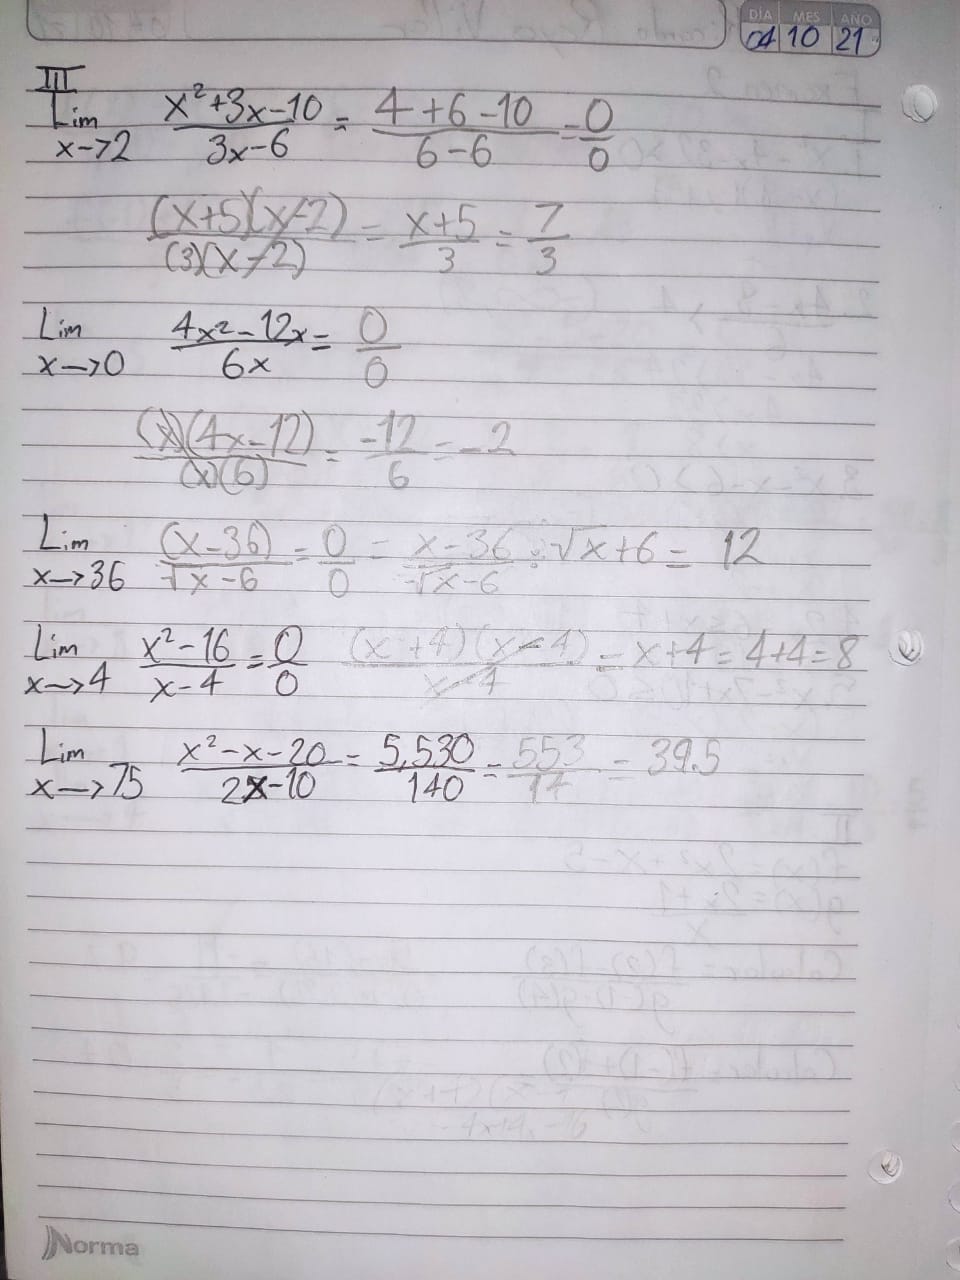 DÍA MES AÑO
04 10 21
III
Lim x→2 x²+3x-10 / 3x-6 = 4+6-10 / 6-6 = 0/0
(x+5)(x-2) / (3)(x-2) = x+5 / 3 = 7/3
Lim x→0 4x²-12x / 6x = 0/0
(x)(4x-12) / (x)(6) = -12/6 = -2
Lim x→36 (x-36) / √x-6 = 0/0 = x-36 / √x-6 = √x+6 = 12
Lim x→4 x²-16 / x-4 = 0/0 (x+4)(x-4) / x-4 = x+4 = 4+4 = 8
Lim x→75 x²-x-20 / 2x-10 = 5,530 / 140 = 553 / 14 = 39.5
Norma